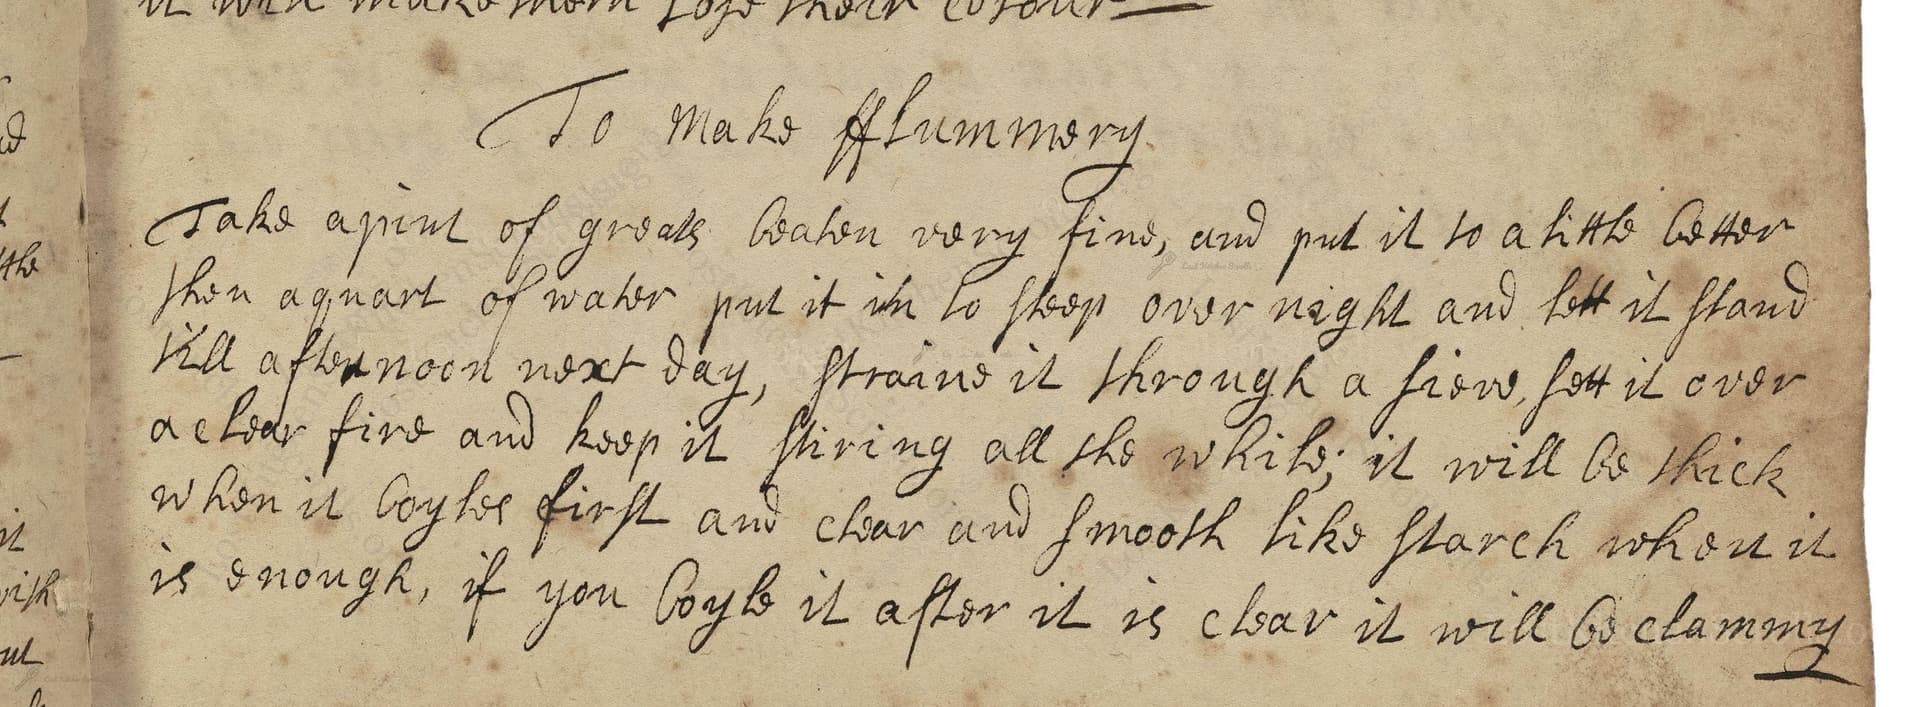 it will make them lose their colour
To Make fflummery
Take a pint of greats beaten very fine, and put it to a little better
then a quart of water put it in to steep over night and lett it stand
till afternoon next day, straine it through a sieve, sett it over
a clear fire and keep it stiring all the while; it will be thick
when it boyles first and clear and smooth like starch when it
is enough, if you boyle it after it is clear it will be clammy